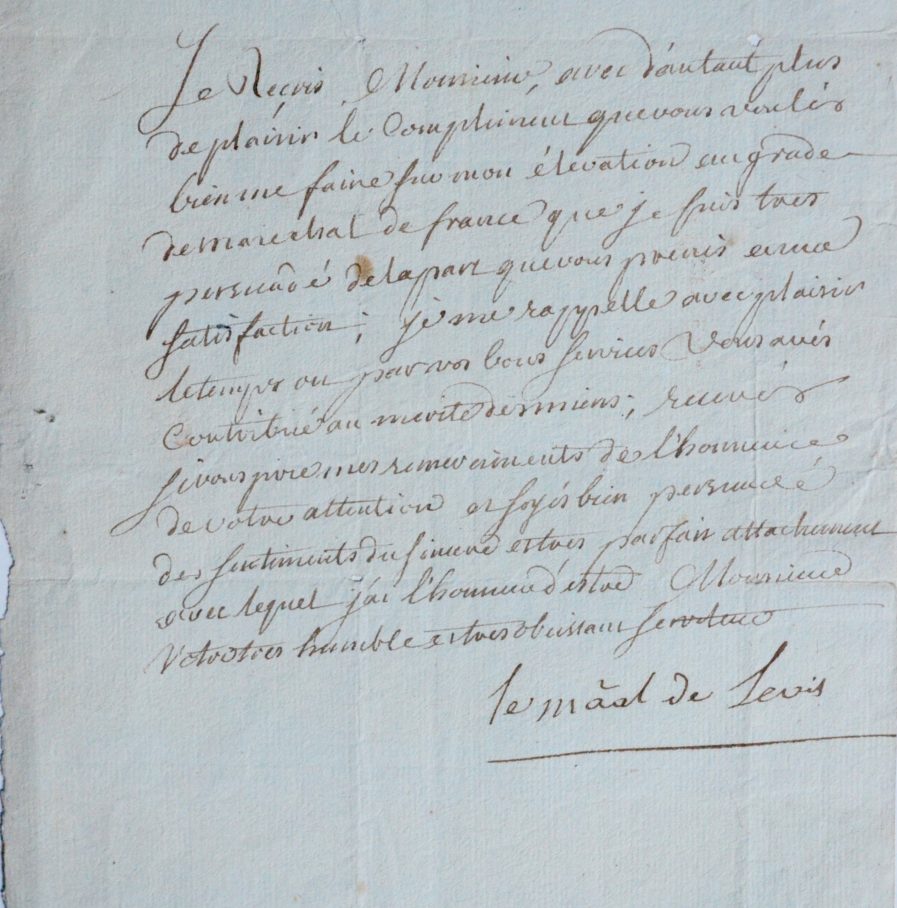 Je Reçois Monsieur, avec d'autant plus
de plaisir le Compliment que vous voulés
bien me faire sur mon élevation au grade
de marechal de france que je suis tres
persuadé de la part que vous prenés a ma
satisfaction; je me rappelle avec plaisir
le temps ou par vos bons services vous avés
contribué au merite des miens; recevés
je vous prie mes remerciments de l'honneur
de votre attention et soyés bien persuadé
des sentiments du sincere et tres parfait attachement
avec lequel j'ai l'honneur d'estre Monsieur
Votre tres humble et tres obeissant serviteur
le mâal de Levis